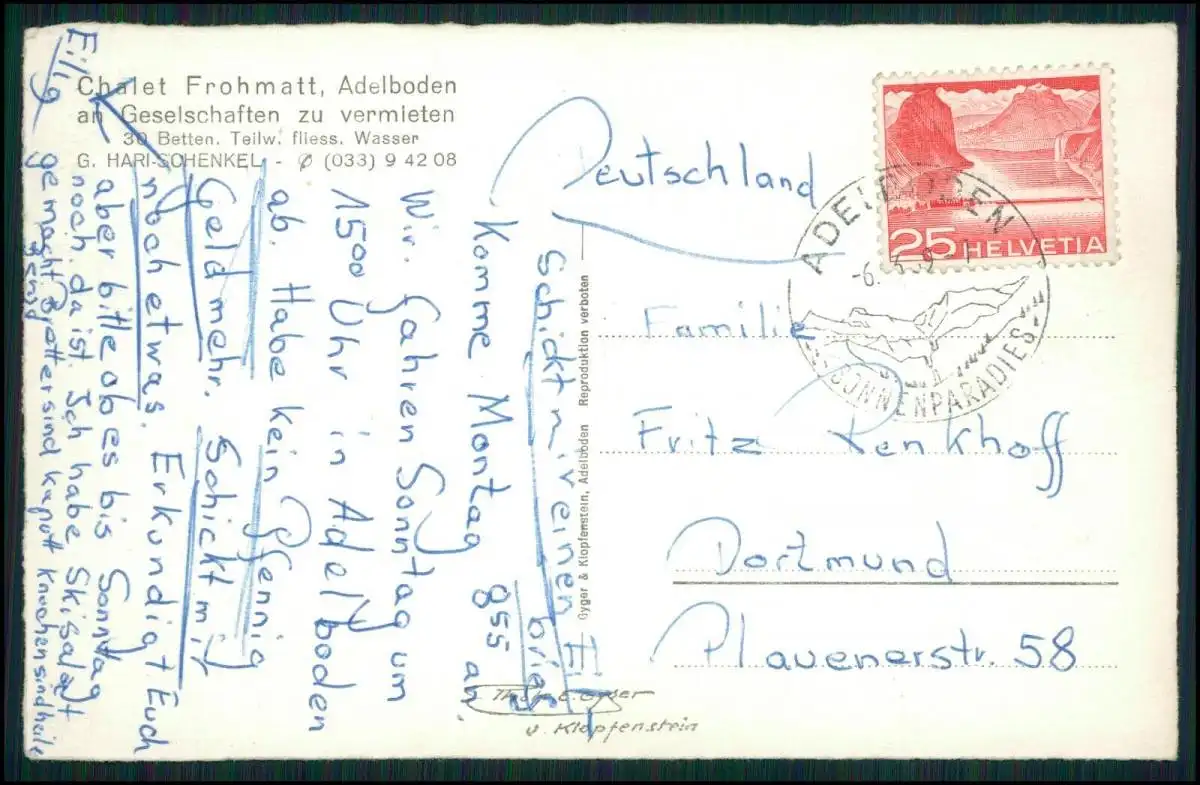 Chalet Frohmatt, Adelboden
an Geselschaften zu vermieten
30 Betten. Teilw. fliess. Wasser
G. HARI-SCHENKEL - ✆ (033) 9 42 08
Eilig
Schickt mir einen Eil
brief
Komme Montag 855 an.
Wir fahren Sonntag um
1500 Uhr in Adelboden
ab. Habe kein Pfennig
Geld mehr. Schickt mir
noch etwas. Erkundigt Euch
aber bitte ob es bis Sonntag
noch da ist. Ich habe Skisalat
gemacht. Bretter sind kaputt Knochen sind heile
Gyger & Klopfenstein, Adelboden Reproduktion verboten
Deutschland
Familie
Fritz Penkhoff
Dortmund
Plauenerstr. 58
25 HELVETIA
ADELBODEN
SONNENPARADIES
Gyger
u. Klopfenstein